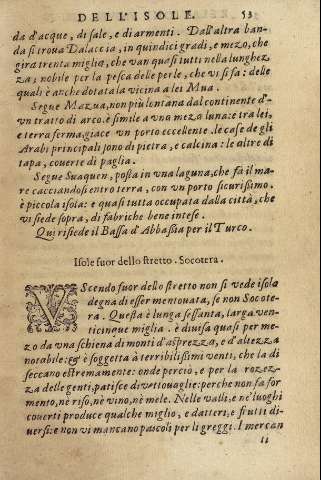 DELL'ISOLE. 53
da d'acque, di sale, e di armenti. Dall'altra ban-
da si troua Dalaccia, in quindici gradi, e mezo, che
gira trenta miglia, che van quasi tutti nella lunghez
za; nobile per la pesca delle perle, che vi si fa: delle
quali è anche dotata la vicina a lei Mua.
Segue Mazua, non più lontana dal continente d'-
vn tratto di arco. è simile a vna meza luna: e tra lei,
e terra ferma, giace vn porto eccellente. le case de gli
Arabi principali sono di pietra, e calcina: le altre di
tapa, couerte di paglia.
Segue Suaquen, posta in vna laguna, che fà il ma-
re cacciandosi entro terra, con vn porto sicurissimo.
è piccola isola: e quasi tutta occupata dalla città, che
vi siede sopra, di fabriche bene intese.
Qui risiede il Bassa d'Abbassia per il Turco.
Isole fuor dello stretto. Socotera.
VScendo fuor dello stretto non si vede isola
degna di esser mentouata, se non Socote-
ra. Questa è lunga sessanta, larga ven-
ticinque miglia. è diuisa quasi per me-
zo da vna schiena di monti d'asprezza, e d'altezza
notabile: & è soggetta à terribilissimi venti, che la di
seccano estremamente: onde perciò, e per la rozez-
za delle genti, patisce di vettouaglie: perche non fa for
mento, nè riso, nè vino, nè mele. Nelle valli, e ne' luoghi
couerti produce qualche miglio, e datteri, e frutti di-
uersi: e non vi mancano pascoli per li greggi. I mercan
ti